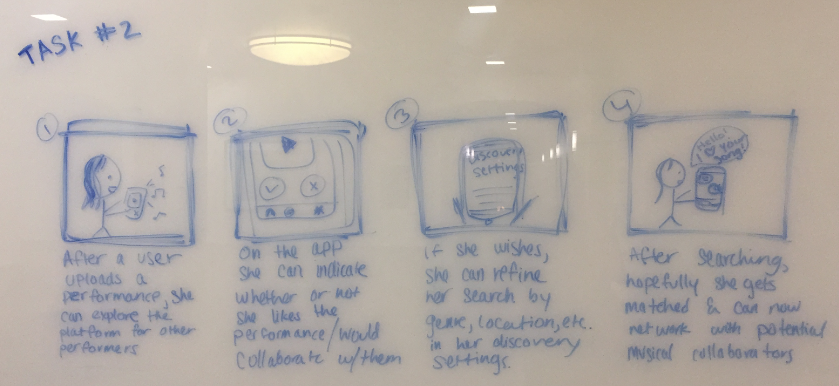 TASK #2
1
After a user
uploads a
performance, she
can explore the
platform for other
performers
2
On the app
she can indicate
whether or not
she likes the
performance/would
collaborate w/them
3
Discovery
settings
if she wishes,
she can refine
her search by
genre, location, etc.
in her discovery
settings.
4
Hello!
I ♥ your
song!
After searching,
hopefully she gets
matched & can now
network with potential
musical collaborators